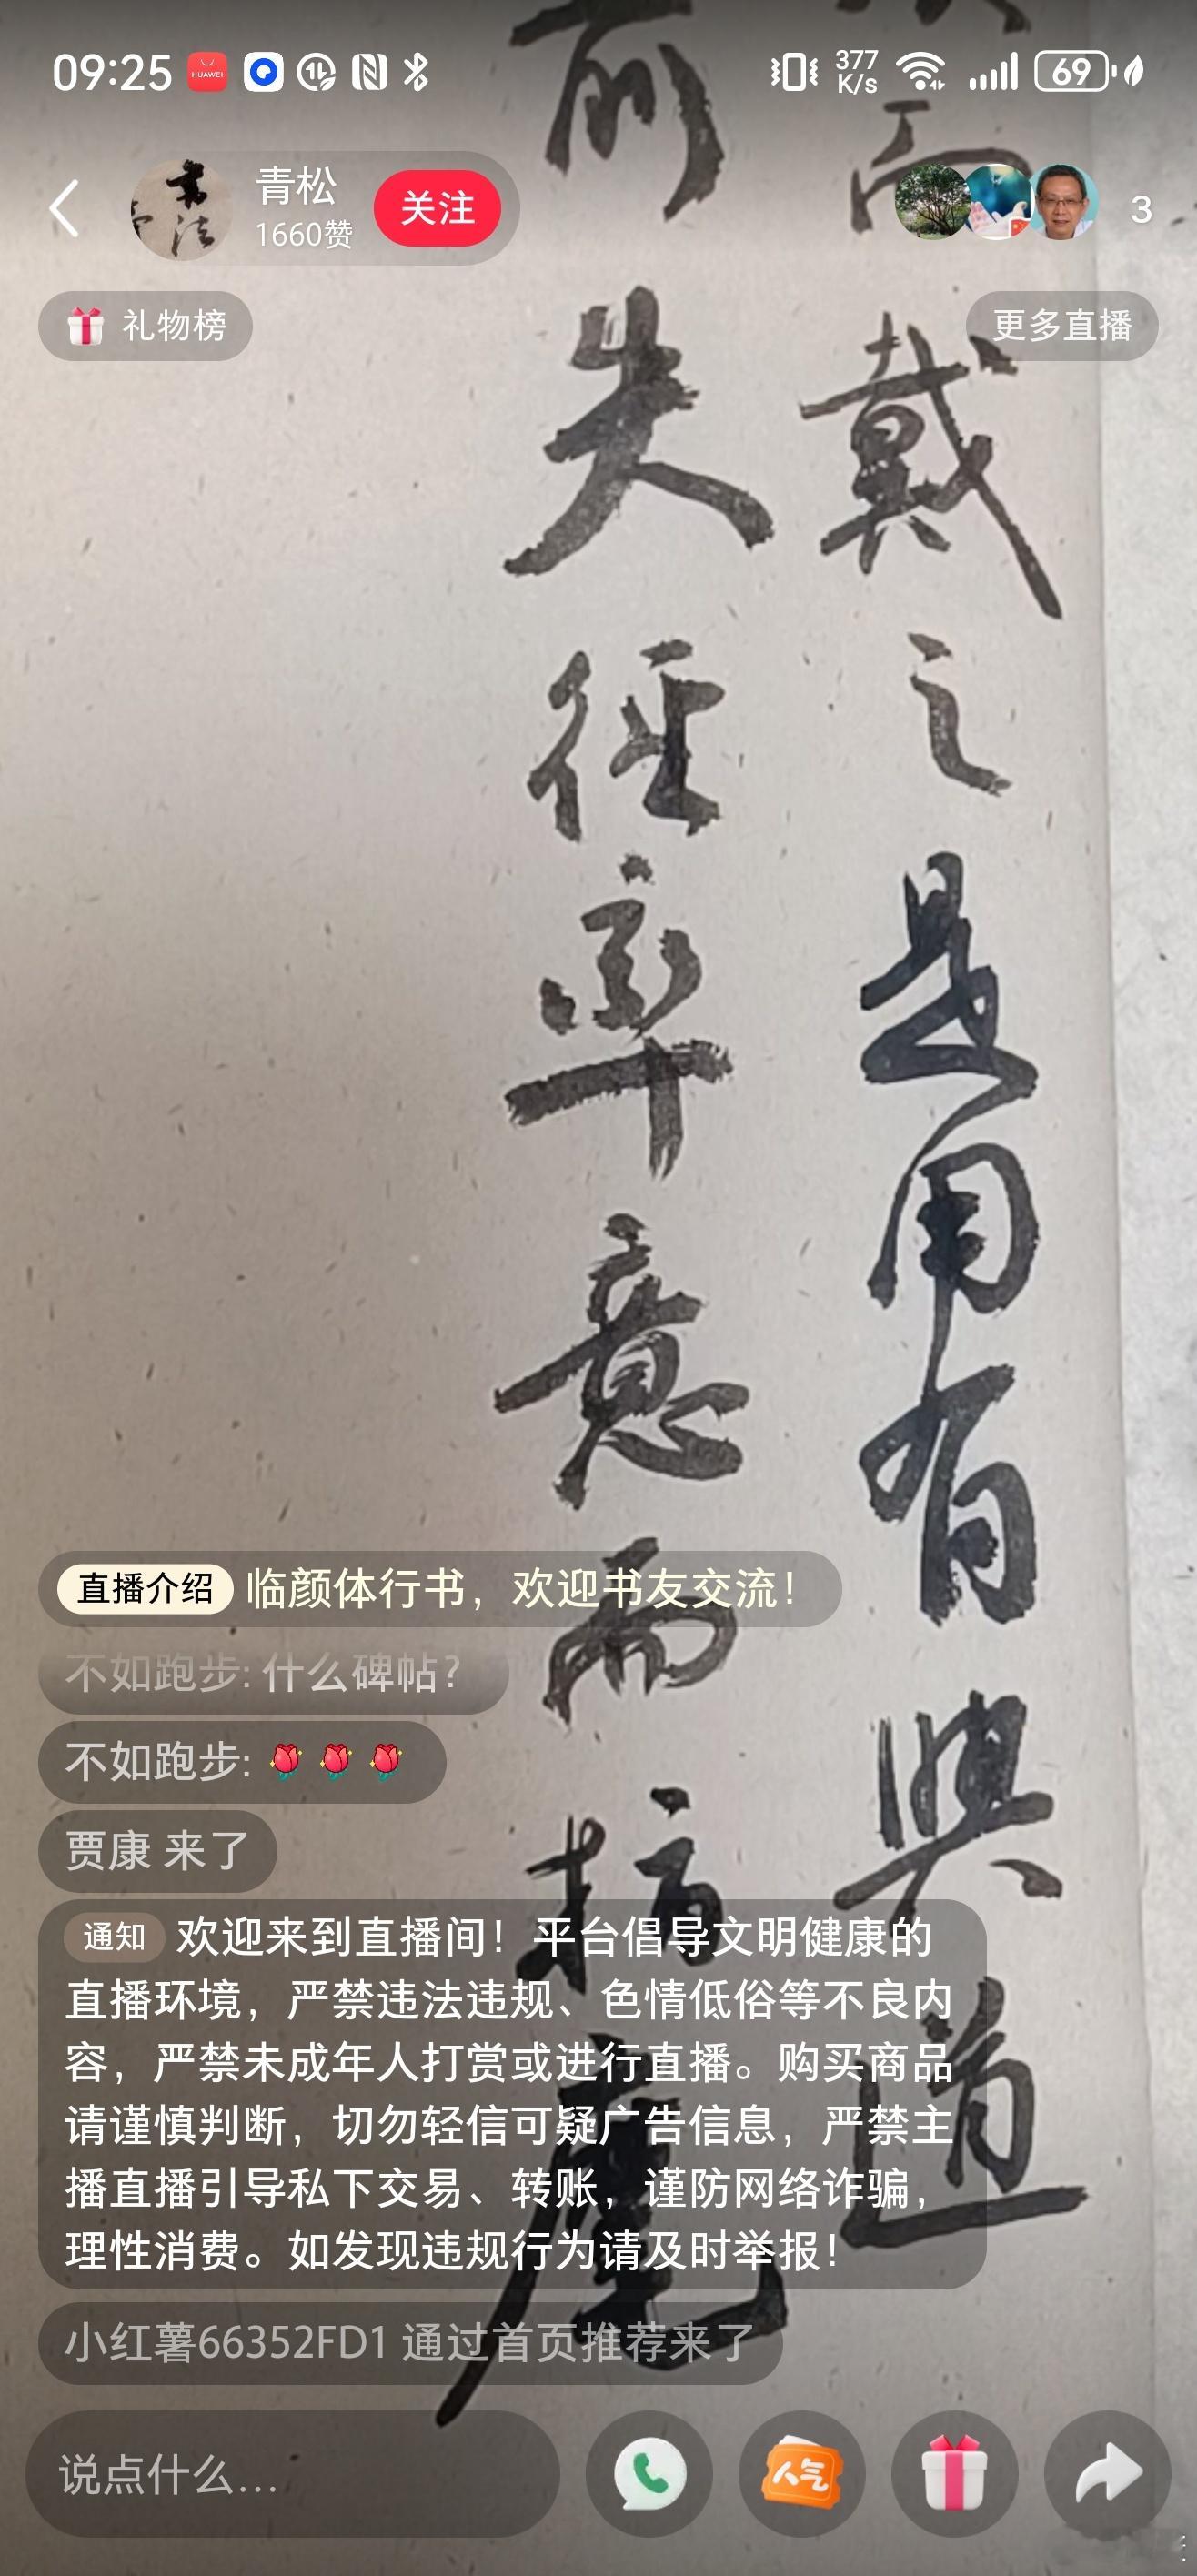 09:25
HUAWEI
377
K/s
69
青松
1660赞
关注
3
礼物榜
更多直播
而戴之是用有興道
前失径率意而指麾
直播介绍 临颜体行书，欢迎书友交流！
不如跑步: 什么碑帖?
不如跑步: 🌹🌹🌹
贾康 来了
通知 欢迎来到直播间！平台倡导文明健康的
直播环境，严禁违法违规、色情低俗等不良内
容，严禁未成年人打赏或进行直播。购买商品
请谨慎判断，切勿轻信可疑广告信息，严禁主
播直播引导私下交易、转账，谨防网络诈骗，
理性消费。如发现违规行为请及时举报！
小红薯66352FD1 通过首页推荐来了
说点什么...
人气